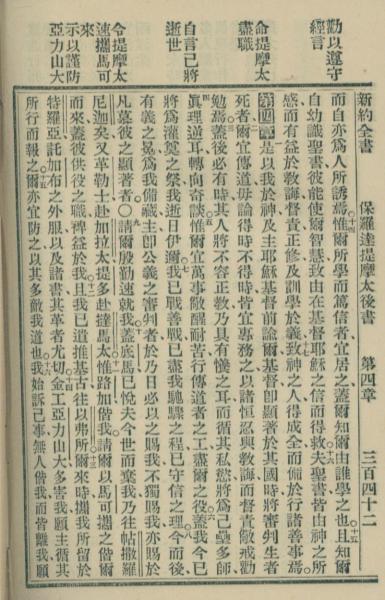 勸以遵守
經言
命提摩太
盡職
自言已將
逝世
令提摩太
速攜馬可
來
示以謹防
亞力山大
新約全書 保羅達提摩太後書 第四章 三百四十二
而自亦爲人所誘焉惟爾所學而篤信者宜居之蓋爾知爾由誰學之也且知爾
自幼識聖書彼能使爾智慧致由在基督耶穌之信而得救夫聖書皆由神之所
感而有益於教誨督責正修及訓學於義致神之人得成全而備於行諸善事焉
第四章是以我於神及主耶穌基督前諭爾基督卽顯著於其國時將審判生者
死者爾宜傳道毋論得時不得時皆宜專務之以諸恒忍與教誨而督責儆戒勸
勉焉蓋後必有時其人將不容正教乃具有癢之耳而循其私慾將爲己壘多師
眞理逆耳轉向奇談惟爾宜萬事儆醒耐苦行傳道者之工盡爾之役蓋我今已
將爲灌奠之祭我逝日伊邇我已戰善戰已盡我馳驟之程已守信之理今而後
有義之冕爲我備藏主卽公義之審判者於乃日必以之賜我不獨賜我亦賜於
凡慕彼之顯著者○請爾殷勤速就我蓋底馬已悅夫今世而棄我乃往帖撒羅
尼迦矣又革勒士赴加拉太提多赴撻馬太惟路加偕我請爾以馬可攜之偕爾
而來蓋彼供役之職裨益於我且我已遣推基古往以弗所爾來時攜我所留於
特羅亞託加布之外服以及諸書其革者尤切金工亞力山大多害我願主循其
所行而報之爾亦宜防之以其多敵我道也我始訴己事無人偕我而皆離我願